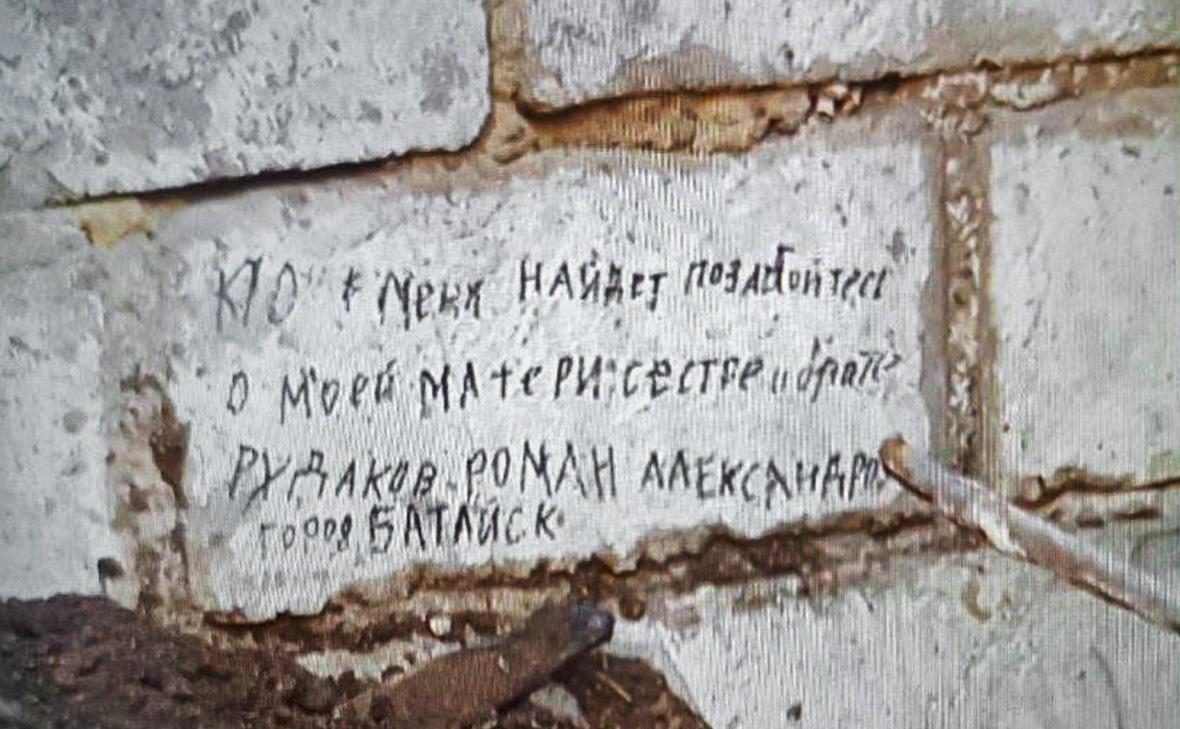 КТО меня НАЙДЕТ позаботтесь
о моей МАТЕРИ сестре и брате
РУДАКОВ РОМАН АЛЕКСАНДРО
город БАТАЙСК